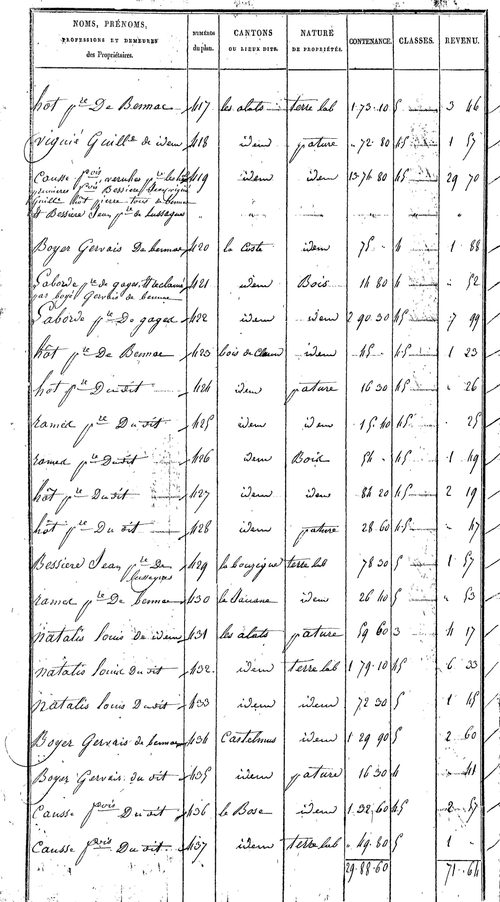 NOMS, PRÉNOMS, PROFESSIONS ET DEMEURES des Propriétaires. NUMÉROS du plan. CANTONS OU LIEUX DITS. NATURE DE PROPRIÉTÉS. CONTENANCE. CLASSES. REVENU.
hot pre De Bennac 417 les alats terre lab 1 73 10 5 3 46
viguié Guille de idem 418 idem pature " 72 80 45 1 57
Causse fois 419 idem idem 13 76 80 45 29 70
premieres fois Bessiere Jean viguié
Guille hot pierre tous de bennac
et Bessiere Jean pre de lussagues
Boyer Gervais De bennac 420 la Coste idem 75 " 4 1 88
Laborde pre de gages et reclamé 421 idem Bois 14 80 4 " 52
par boyer Gervais de bennac
Laborde pre De gages 422 idem idem 2 90 30 45 7 99
hot pre De Bennac 423 bois de idem 45 " 45 1 23
hot pre Du dit 424 idem pature 16 30 45 " 26
ramed pre Du dit 425 idem idem 15 40 45 " 25
ramed pre Du dit 426 idem Bois 54 " 45 1 49
hot pre Du dit 427 idem idem 84 20 45 2 19
hot pre Du dit 428 idem pature 28 60 45 " 47
Bessiere Jean pre De 429 la bouzigue terre lab 78 30 5 1 57
lussagues
ramed pre De bennac 430 idem 26 40 5 " 53
natalis louis de idem 431 les alats pature 59 60 3 4 17
natalis louis du dit 432 idem terre lab 1 79 10 45 6 33
natalis louis Du dit 433 idem idem 72 30 5 1 45
Boyer Gervais de bennac 434 Castelmus idem 1 29 90 5 2 60
Boyer Gervais du dit 435 idem pature 16 30 4 " 41
Causse fois Du dit 436 le Bose idem 1 32 60 45 2 57
Causse fois Du dit 437 idem terre lab " 49 80 5 1 "
29 88 60 71 64